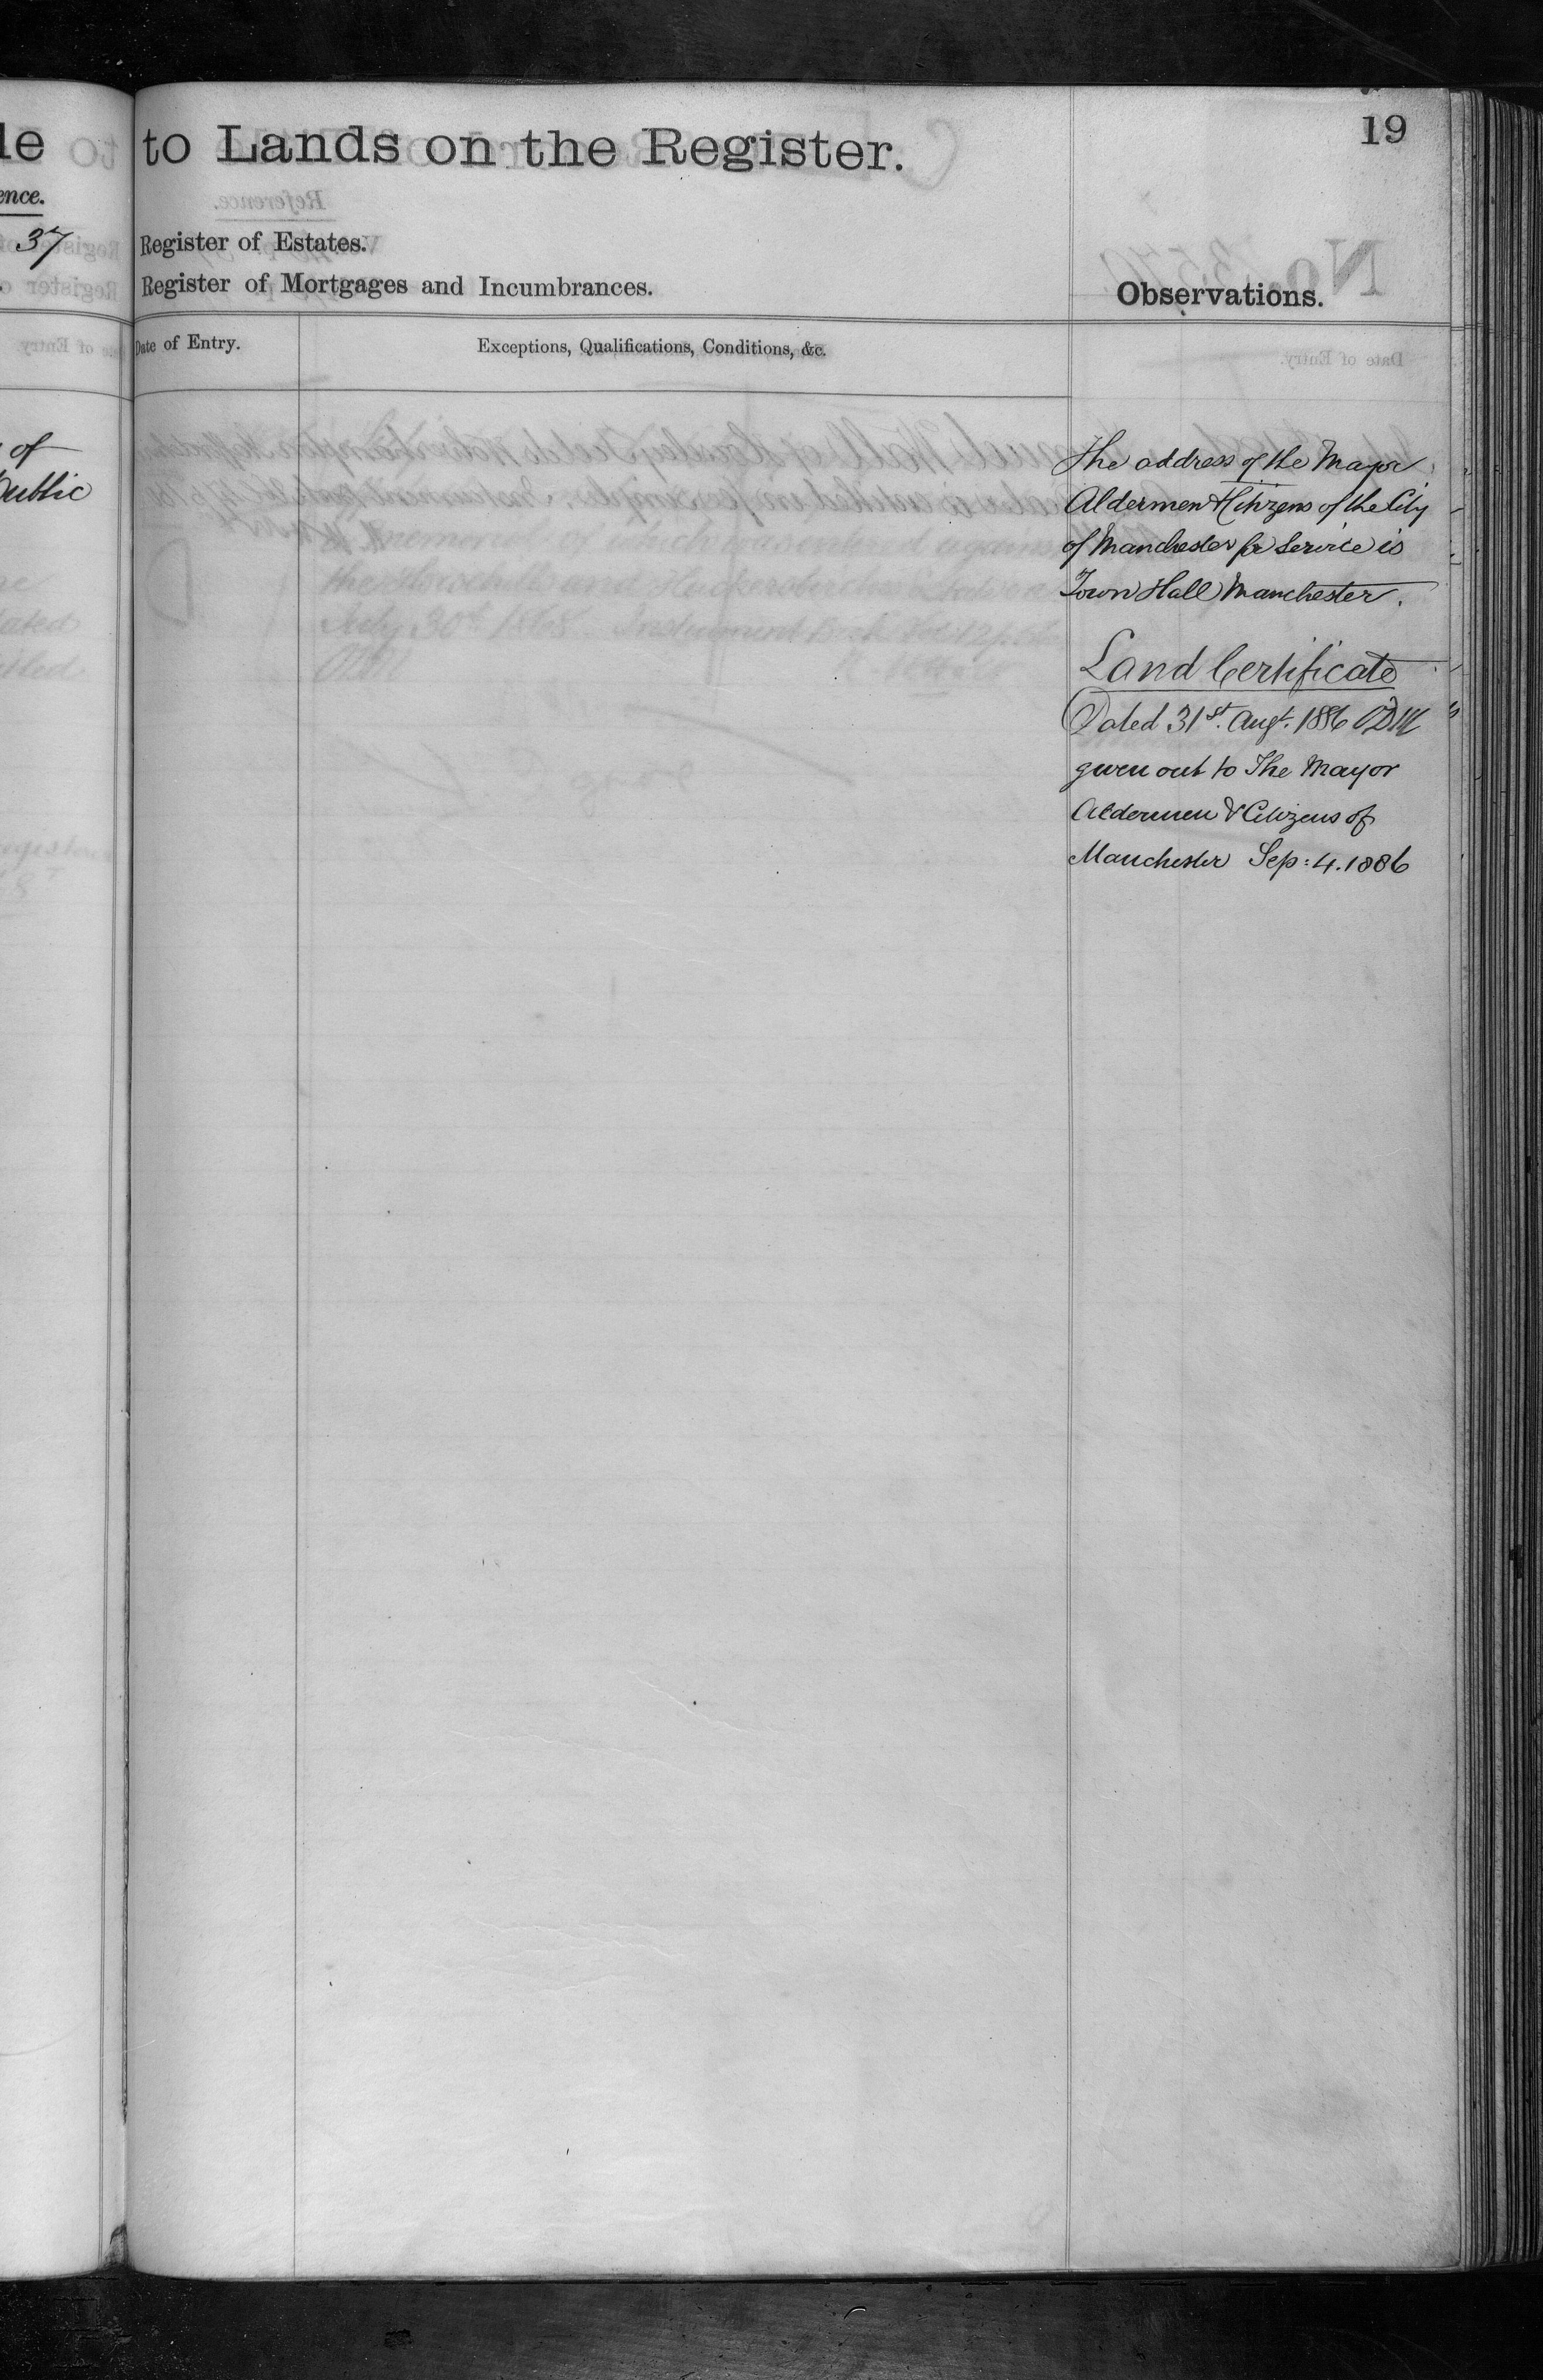 le
ence.
37
of
Public
to Lands on the Register.
19
Register of Estates.
Register of Mortgages and Incumbrances.
Observations.
Date of Entry.
Exceptions, Qualifications, Conditions, &c.
The address of the Mayor
Aldermen & Citizens of the City
of Manchester for Service is
Town Hall Manchester.
Land Certificate
Dated 31st. Augt. 1886
given out to The Mayor
Aldermen & Citizens of
Manchester Sep: 4. 1886